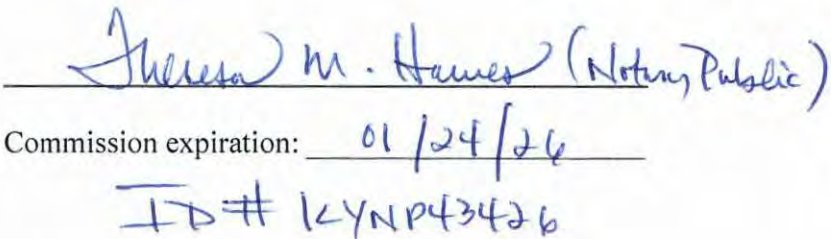 Theresa M. Hawes (Notary Public)
Commission expiration: 01/24/26
ID# KYNP43426